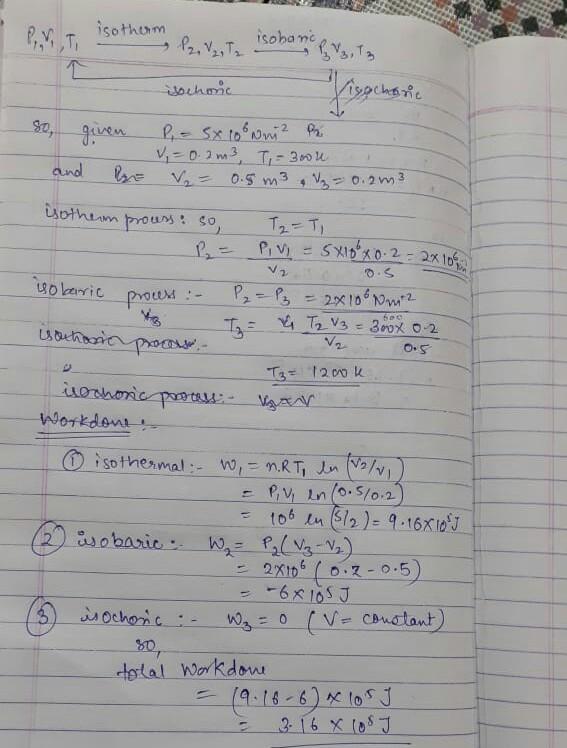 P₁, V₁, T₁ isotherm → P₂, V₂, T₂ isobaric → P₃ V₃, T₃
isochoric isochoric
so, given P₁ = 5×10⁶ Nm⁻² P₂
V₁ = 0.2 m³, T₁ = 300 K
and P₂ = V₂ = 0.5 m³, V₃ = 0.2 m³
isotherm process: so, T₂ = T₁
P₂ = P₁V₁/V₂ = 5×10⁶×0.2/0.5 = 2×10⁶
isobaric process :- P₂ = P₃ = 2×10⁶ Nm⁻²
V₃ T₃ = T₂ V₃/V₂ = 300× 0.2/0.5
isochoric process:-
T₃ = 1200 K
isochoric process:- V₃ = V
Workdone :-
① isothermal:- W₁ = nRT₁ ln (V₂/V₁)
= P₁V₁ ln (0.5/0.2)
= 10⁶ ln (5/2) = 9.16×10⁵ J
② isobaric :- W₂ = P₂(V₃-V₂)
= 2×10⁶ (0.2 - 0.5)
= -6×10⁵ J
③ isochoric :- W₃ = 0 (V = constant)
so,
total Workdone
= (9.16 - 6) × 10⁵ J
= 3.16 × 10⁵ J